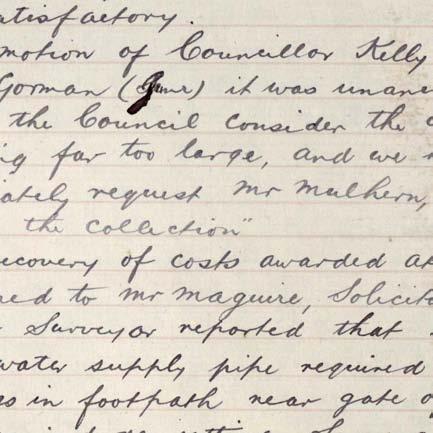 atisfactory.
motion of Councillor Kelly
Gorman ( ) it was unani
the Council consider the
ng far too large, and we
ately request Mr Mulhern,
the collection"
ecovery of costs awarded at
red to Mr Maguire, Solicito
Surveyor reported that
water supply pipe required
s in footpath near gate o